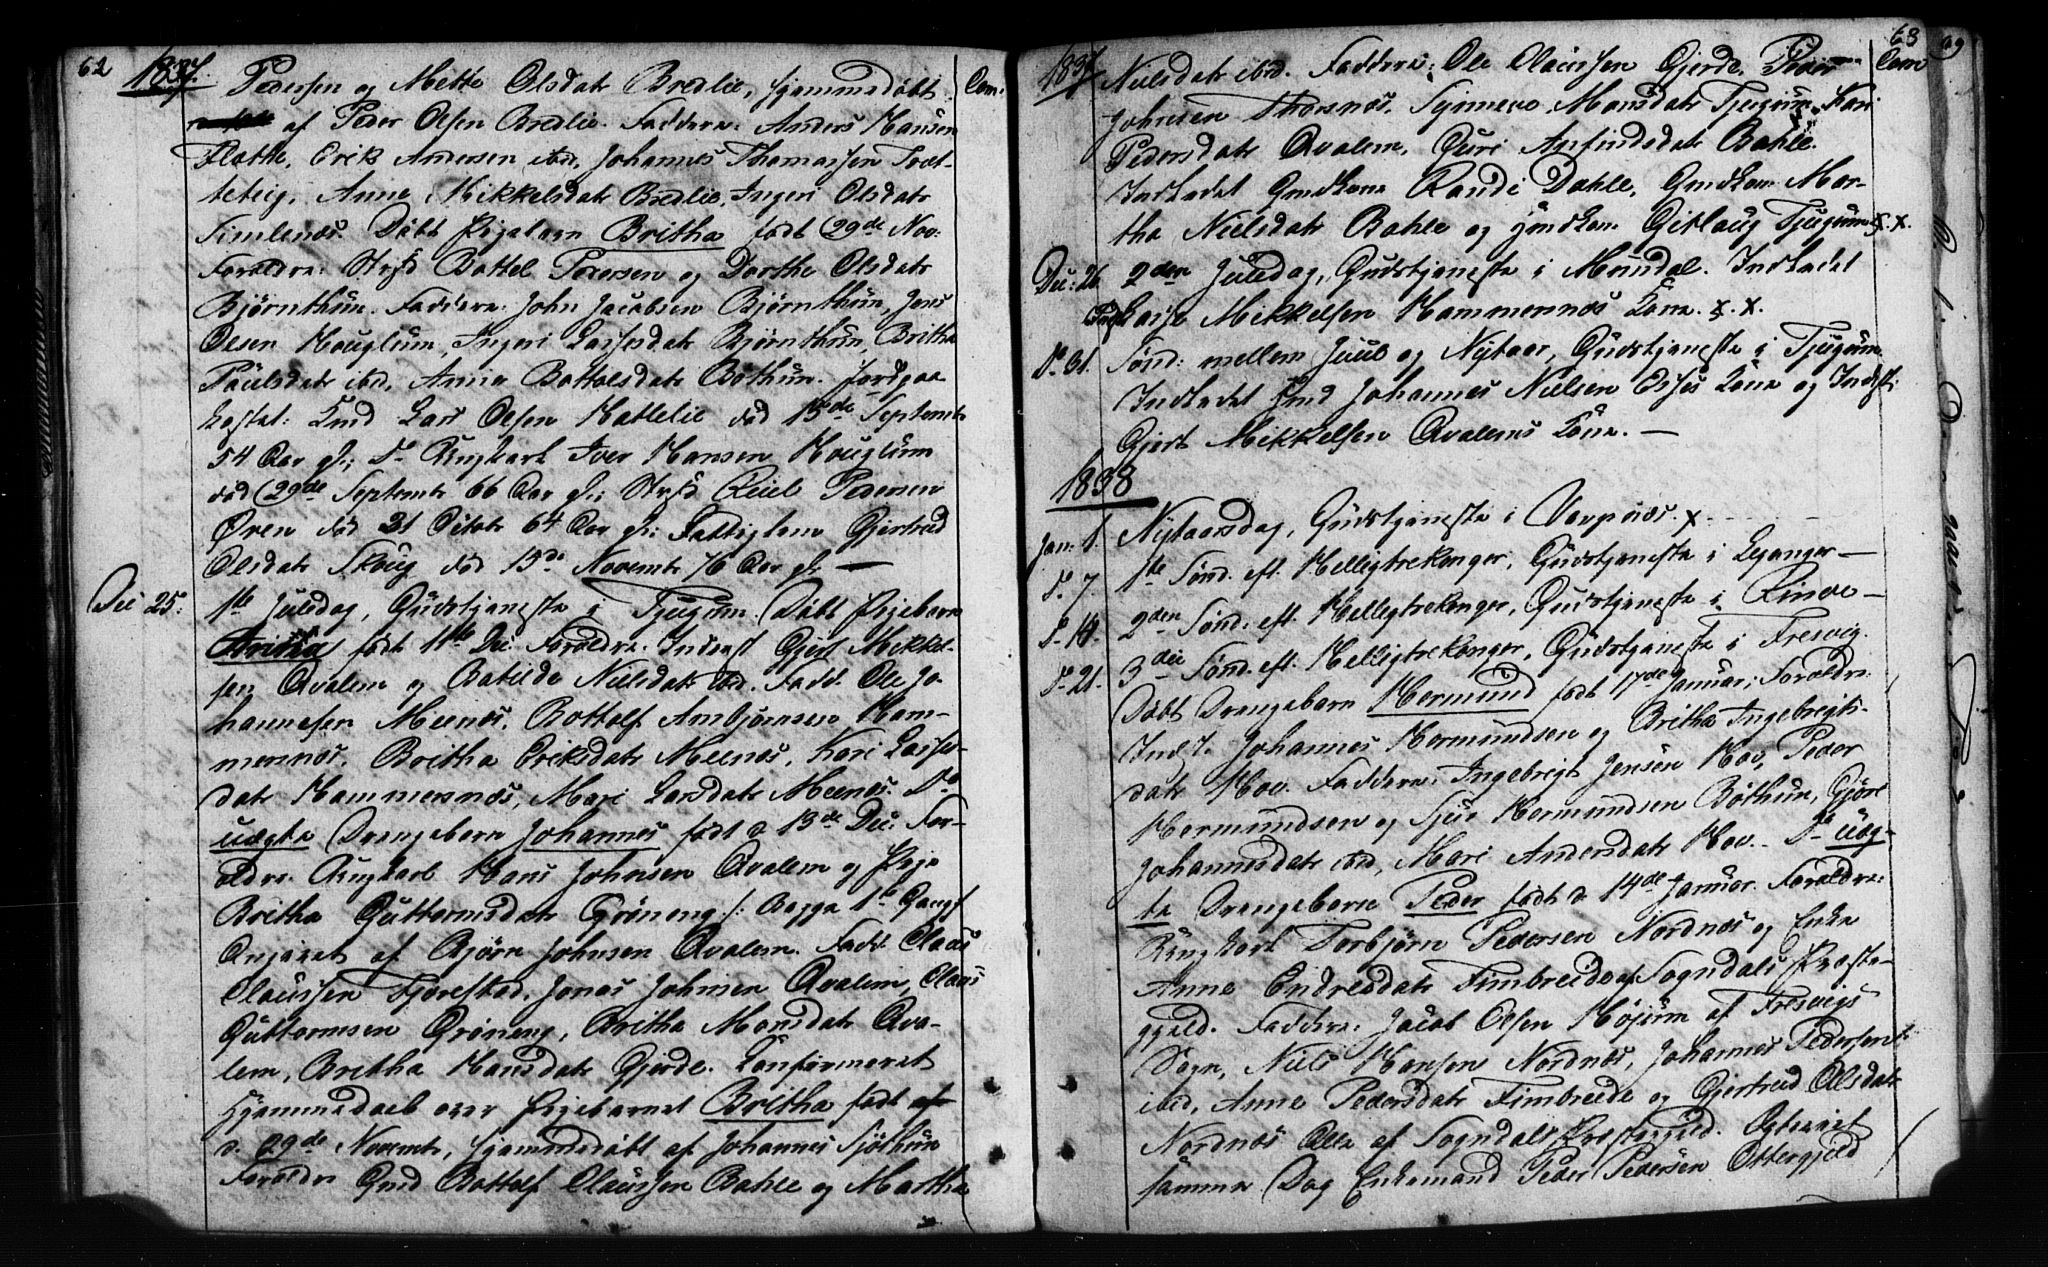 62 1837. Pedersen og Mette Olsdatr Bredlie, hjemmedøbt Com:
af Peder Olsen Bredlie. Faddere: Anders Hansen
Flathe, Erik Andersen ibd, Johannes Thomassen Tret-
teteig, Anne Mikkelsdatr Bredlie, Ingeri Olsdatr
Simlenæs. Døbt Pigebarn Britha født 29de Nov:
Forældre: Strsd Bottel Petersen og Dorthe Olsdatr
Bjørnthun. Faddere: John Jacobsen Bjørnthun, Jens
Olsen Houglum, Ingeri Lassesdatr Bjørnthun, Britha
Paulsdatr ibd, Anna Bottolsdatr Bøthun. Jordpaa
kastet: Lars Olsen Hattelie død 15de Septembr
54 Aar gl; Do Ungkarl Iver Hansen Houglum
død 29de Septembr 66 Aar gl; Strsd Pedersen
Øren død 21 Octobr 64 Aar gl; Fattiglem Gjertrud
Olsdatr Skoug død 15de Novembr 76 Aar gl. —
Dec 25: 1te Juledag, Gudstjeneste i Tjugum. Døbt Pigebarn
født 11te Dec. Forældre: Inderst Gjert Mikkel-
sen Qvalem og Batilde Nielsdatr ibd. Fadd: Ole Jo-
hannesen Meenæs, Bottolf Ambjørnsen Ham-
mersnæs, Britha Eriksdatr Meenæs, Kari Lasses-
datr Hammersnæs, Mari Larsdatr Meenæs. Do
uægte Drengebarn Johannes født d 13de Dec: For-
ældre: Ungkarl Hans Johnsen Qvalem og Pige
Britha Guttormsdatr Grøneng /: Begge 1te Gang :/
Angivet af Bjørn Johnsen Qvalem. Fadd: Claus
Claussen Fjerestad, Jonas Johnsen Qvalem, Claus
Guttormsen Grøneng, Britha Monsdatr Qva-
lem, Britha Hansdatr Gjerde. Confirmeret
Hjemmedaab over Pigebarnet Britha født
d. 29de Novembr, hjemmedøbt af Johannes Sjøthun
Forældre Gmd Bottolf Claussen Bahle og Martha
1837 Nielsdatr ibd. Faddere: Ole Claussen Gjerde, Peder Com 63
Johnsen Thorsnæs, Synneve Monsdatr Tjugum, Kari
Pedersdatr Qvalem, Guri Anfindsdatr Bahle.
Indledet Gmdkone Randi Dahle, Gmdkon: Mar-
tha Nielsdatr Bahle og Hmdkon: Girlaug Tjugum x. x.
Dec: 26. 2den Juledag, Gudstjeneste i Mundal. Indledet
Mikkelsen Hammersnæs Kone. x. x.
Do 31. Sønd: mellem Juul og Nytaar, Gudstjeneste i Tjugum.
Indledet Hmd Johannes Nielsen Kone og Indst:
Gjert Mikkelsen Qvalems Kone. —
1838
Jan: 1. Nytaarsdag, Gudstjeneste i Vangsnæs. x
Do 7. 1te Sønd. eft. Helligtrekonger, Gudstjeneste i Leganger —
Do 14. 2den Sønd. eft. Helligtrekonger, Gudstjeneste i Rinde —
Do 21. 3die Sønd. eft. Helligtrekonger, Gudstjeneste i Fresvig.
Døbt Drengebarn Hermund født 17de Januar; Forældre:
Indst. Johannes Hermundsen og Britha Ingebrigts-
datr Hov. Faddere: Ingebrigt Jensen Hov, Peder
Hermundsen og Sjur Hermundsen Bøthun, Gjøri
Johannesdatr ibd, Mari Andersdatr Hov. Do uæg-
te Drengebarn Peder født d 14de Januar. Forældre:
Ungkarl Torbjørn Pedersen Nordnæs og Enke
Anne Endresdatr Fimbreide af Sogndals Præste-
gjeld. Faddere: Jacob Olsen Højum af Fresvigs
Sogn, Niels Hansen Nordnæs, Johannes Pedersen
ibid, Anne Pedersdatr Fimbreide og Gjertrud Olsdatr
Nordnæs Alle af Sogndals Præstegjeld. Ægteviet
samme Dag Enkemand Peder Pedersen Ottergjeld